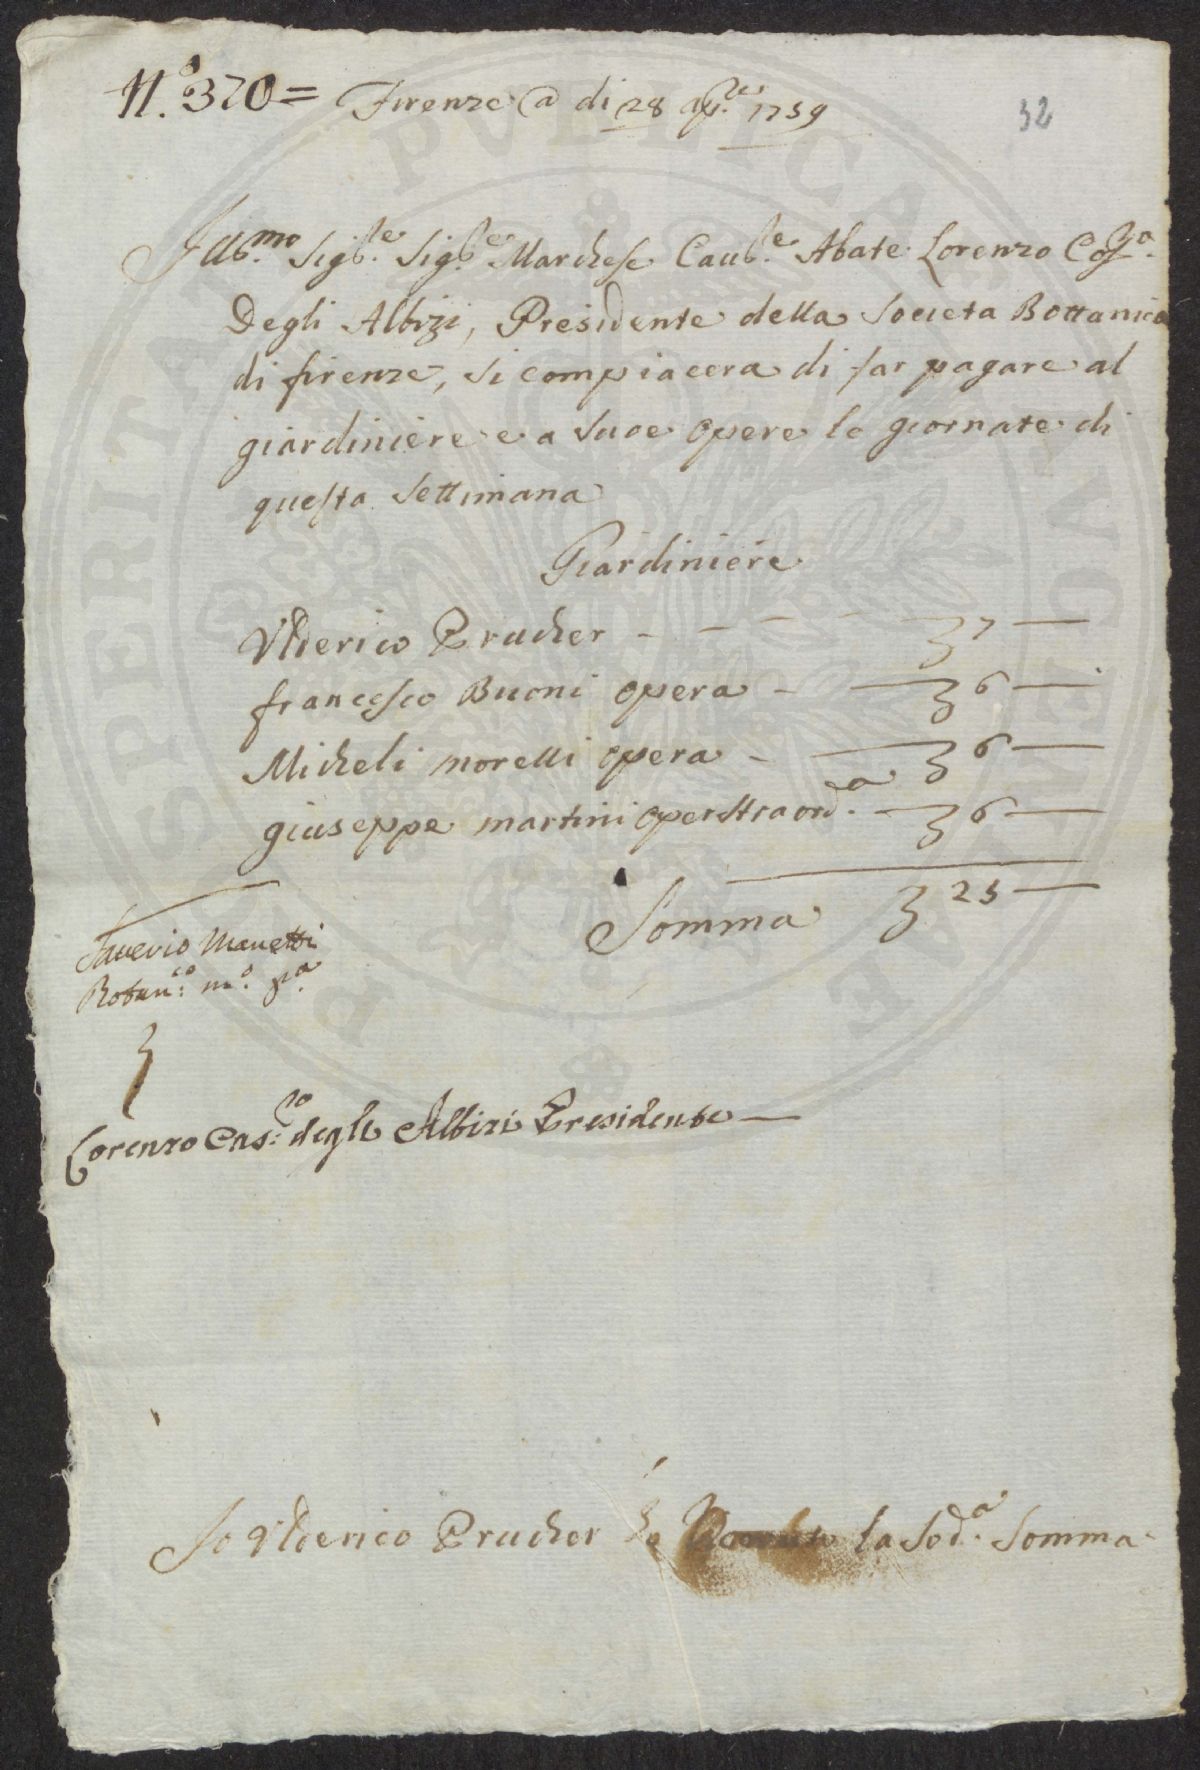 N.º 370 = Firenze @ di 28 ap.le 1759
32
Ill.mo Sig.re Sig.re Marchese Caul.e Abate Lorenzo
Degli Albizi, Presidente della Societa Bottanica
di firenze, si compiacera di far pagare al
giardiniere e a sue opere le giornate di
questa Settimana
Giardiniere
Ulderico Prucher - - - - - 7 —
francesco Buoni opera - — 6 —
Micheli morelli opera - — 6 —
giuseppe martini oper straord.a — 6 —
Somma 25 —
Saverio Manetti
Botan.co m.o p.a
Lorenzo Cas.:ro degli Albizi Presidente —
Io Ulderico Prucher ho Riceuuto la Sod.a Somma
PROSPERITAS PVBLICAE AVGENDAE